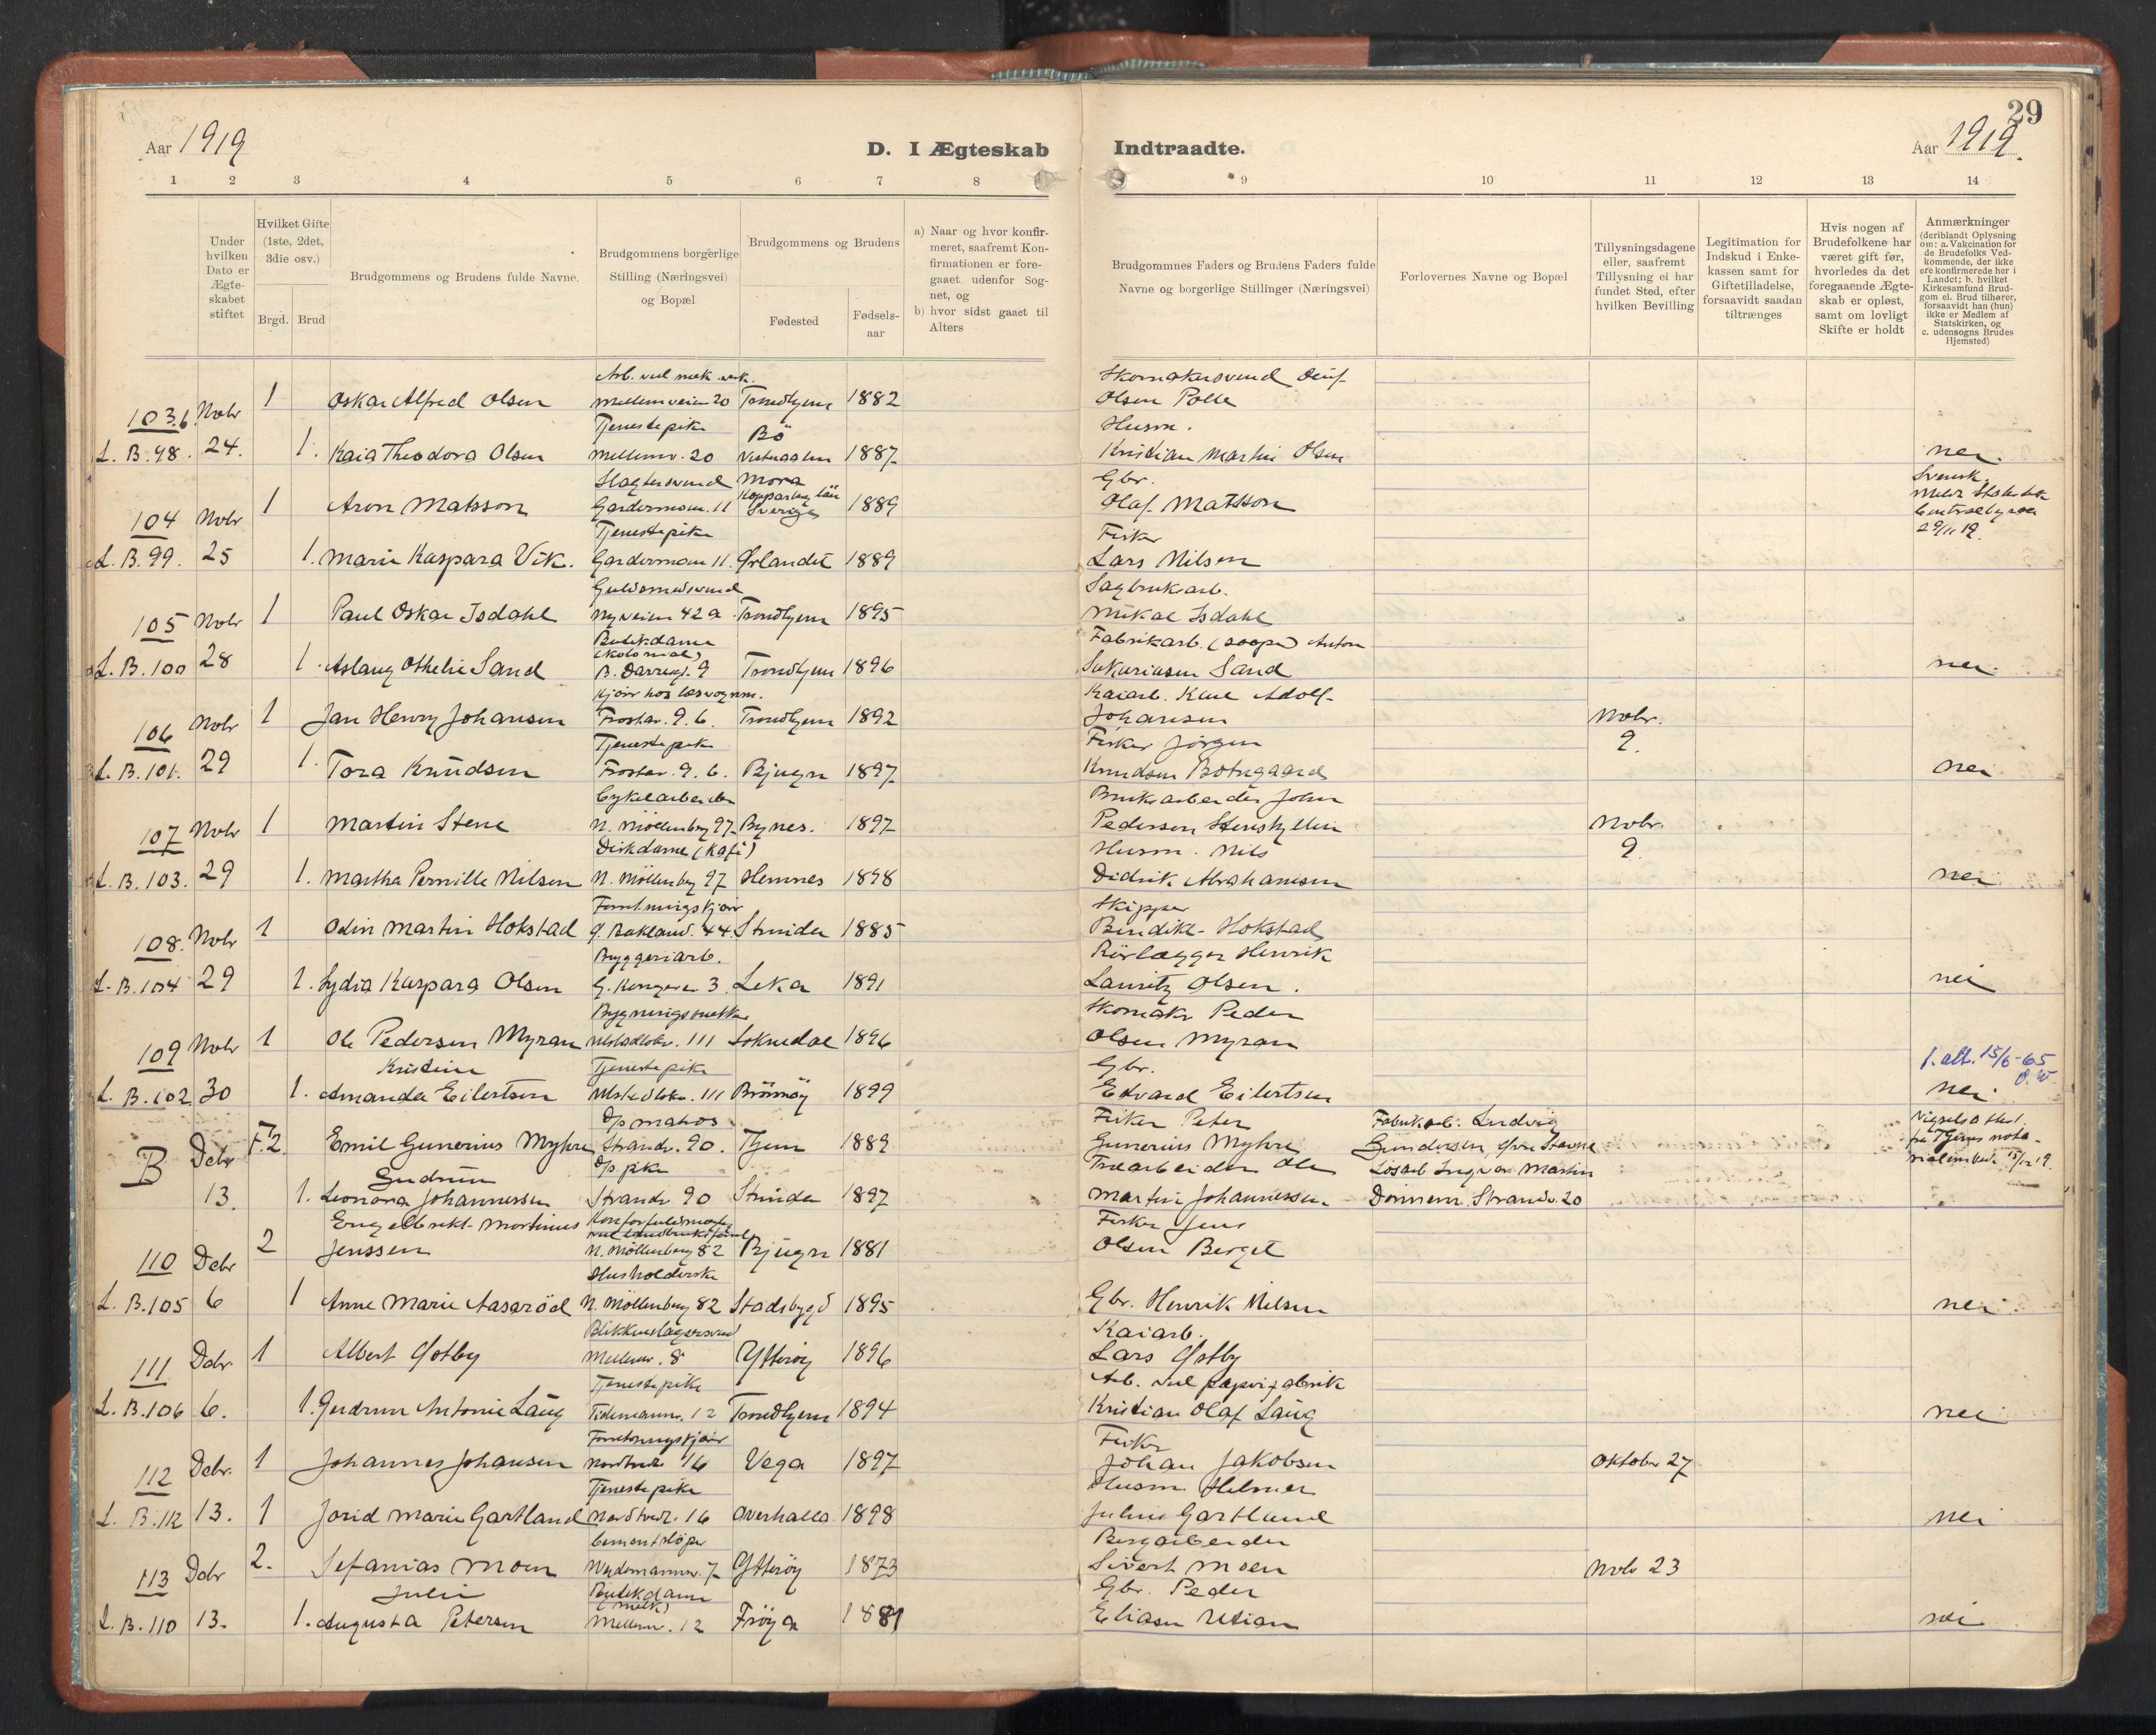 29
Aar 1919
D. I Ægteskab Indtraadte.
Aar 1919.
1 2 3 4 5 6 7 8 9 10 11 12 13 14
Under hvilken Dato er Ægte-skabet stiftet
Hvilket Gifte (1ste, 2det, 3die osv.)
Brgd. Brud
Brudgommens og Brudens fulde Navne.
Brudgommens borgerlige Stilling (Næringsvei) og Bopæl
Brudgommens og Brudens
Fødested
Fødsels-aar
a) Naar og hvor konfir-meret, saafremt Kon-firmationen er fore-gaaet udenfor Sog-net, og
b) hvor sidst gaaet til Alters
Brudgommnes Faders og Brudens Faders fulde Navne og borgerlige Stillinger (Næringsvei)
Forlovernes Navne og Bopæl
Tillysningsdagene eller, saafremt Tillysning ei har fundet Sted, efter hvilken Bevilling
Legitimation for Indskud i Enke-kassen samt for Giftetilladelse, forsaavidt saadan tiltrænges
Hvis nogen af Brudefolkene har været gift før, hvorledes da det foregaaende Ægte-skab er opløst, samt om lovligt Skifte er holdt
Anmærkninger (deriblandt Oplysning om: a. Vakcination for de Brudefolks Ved-kommende, der ikke ere konfirmerede her i Landet; b. hvilket Kirkesamfund Brud-gom el. Brud tilhører, forsaavidt han (hun) ikke er Medlem af Statskirken, og c. udensogns Brudes Hjemsted)
Arb. ved mek. verk. Skomakersvend
103. Novbr 1 Oskar Alfred Olsen Mellemveien 20 Trondhjem 1882 Olsen Polle
Tjenestepike Bö Husm.
L. B. 98. 24. 1. Kaia Theodora Olsen Mellemv. 20 Vesteraalen 1887 Kristian Martin Olsen nei.
Slagtersvend Mora Gbr. Svensk.
104 Novbr 1 Aron Matsson Gardermoen. 11 Kopparberg län Sverige 1889 Olaf Matsson 29/11 19.
Tjenestepike Fisker
L. B. 99. 25 1. Marie Kaspara Vik. Gardermoen 11. Ørlandet 1889 Lars Nilsen
Guldsmedsvend Sagbruksarb.
105 Novbr 1 Paul Oskar Isdahl Nyveien 42 a Trondhjem 1895 Mikal Isdahl
Butikdame (kolonial) Fabrikarb. (saape) Anton
L. B. 100 28 1. Aslaug Othelie Sand 9 Trondhjem 1896 Sakariasen Sand nei.
Kjörer hos Kaiarb. Karl Adolf
106 Novbr 1 Jan Henry Johansen Frostav. 9. b. Trondhjem 1892 Johansen Novbr.
Tjenestepike Fisker Jörgen 9.
L. B. 101. 29 1. Tora Knudsen Frostav. 9. b. Bjugn 1897 Knudsen Botngaard nei
Cykelarbeider Bruksarbeider John
107 Novbr 1 Martin Stene N. Möllenberg 97 Bynes. 1897 Pedersen Novbr.
Diskdame (kafé) Husm. Nils 9
L. B. 103. 29 1. Martha Pernille Nilsen N. Möllenberg 97 Hemnes 1898 Didrik Abrahamsen nei
Forretningskjörer Skipper
108. Novbr 1 Odin Martin Hokstad Ø. Bakland. 44. Strinda 1885 Bendik Hokstad
Bryggeriarb. Rörlægger Henrik
L. B. 104 29 1. Lydia Kaspara Olsen G. Kongevei 3 Leka 1891 Lauritz Olsen. nei
Bygningssnekker Skomaker Peder
109 Novbr 1 Ole Pedersen Myran 111 Soknedal 1896 Olsen Myran
Kristine Tjenestepike Gbr. 1. att. 15/6-65
L. B. 102 30 1. Amanda Eilertsen 111 Brönnöy 1899 Edvard Eilertsen nei.
D/s matros Fisker Peter Fabrikarb. Ludvig
B Debr F. 2. Emil Gunerius Myhre Strandv. 90. Tjem 1889 Gunerius Myhre Gundersen, Øvre Stavne
Gudrun D/s pike Træarbeider Ole Lösarb. Ingvar Martin
13. 1. Leonora Johannessen Strandv. 90 Strinda 1897 Martin Johannessen Dönnem. Strandv. 20
Engelbrikt Martinus Fisker Jens
110 Debr 2 Jenssen N. Möllenberg 82 Bjugn 1881 Olsen Berget
Husholderske
L. B. 105 6 1 Anne Marie Aasaröd N. Möllenberg 82 Stadsbygd 1895 Gbr. Henrik Nilsen nei.
Blikkenslagersvend Kaiarb.
111 Debr. 1 Albert Østby Mellemv. 8 Ytteröy 1896 Lars Østby
Tjenestepike Arb. ved papirfabrik
L. B. 106 6. 1. Gudrun Antonie Laug Tidemannsv. 12 Trondhjem 1894 Kristian Olaf Laug nei
Forretningskjörer Fisker
112 Debr. 1 Johannes Johansen 16 Vega 1897 Johan Jakobsen Oktober 27
Tjenestepike Husm. Helmer
L. B. 112 13. 1 Jorid Marie Gartland 16 Overhalla 1898 Julius Gartland nei
Cementstöper Bergarbeider
113 Debr 2. Sefanias Moen 7 Ytteröy 1873 Sivert Moen Novbr 23
Julie Butikdame (melk) Gbr. Peder
L. B. 110 13. 1. Augusta Petersen Mellemv. 12 Fröya 1881 Eliasen Utian nei